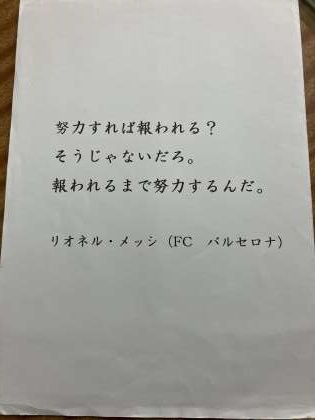 努力すれば報われる？
そうじゃないだろ。
報われるまで努力するんだ。
リオネル・メッシ（FC　バルセロナ）